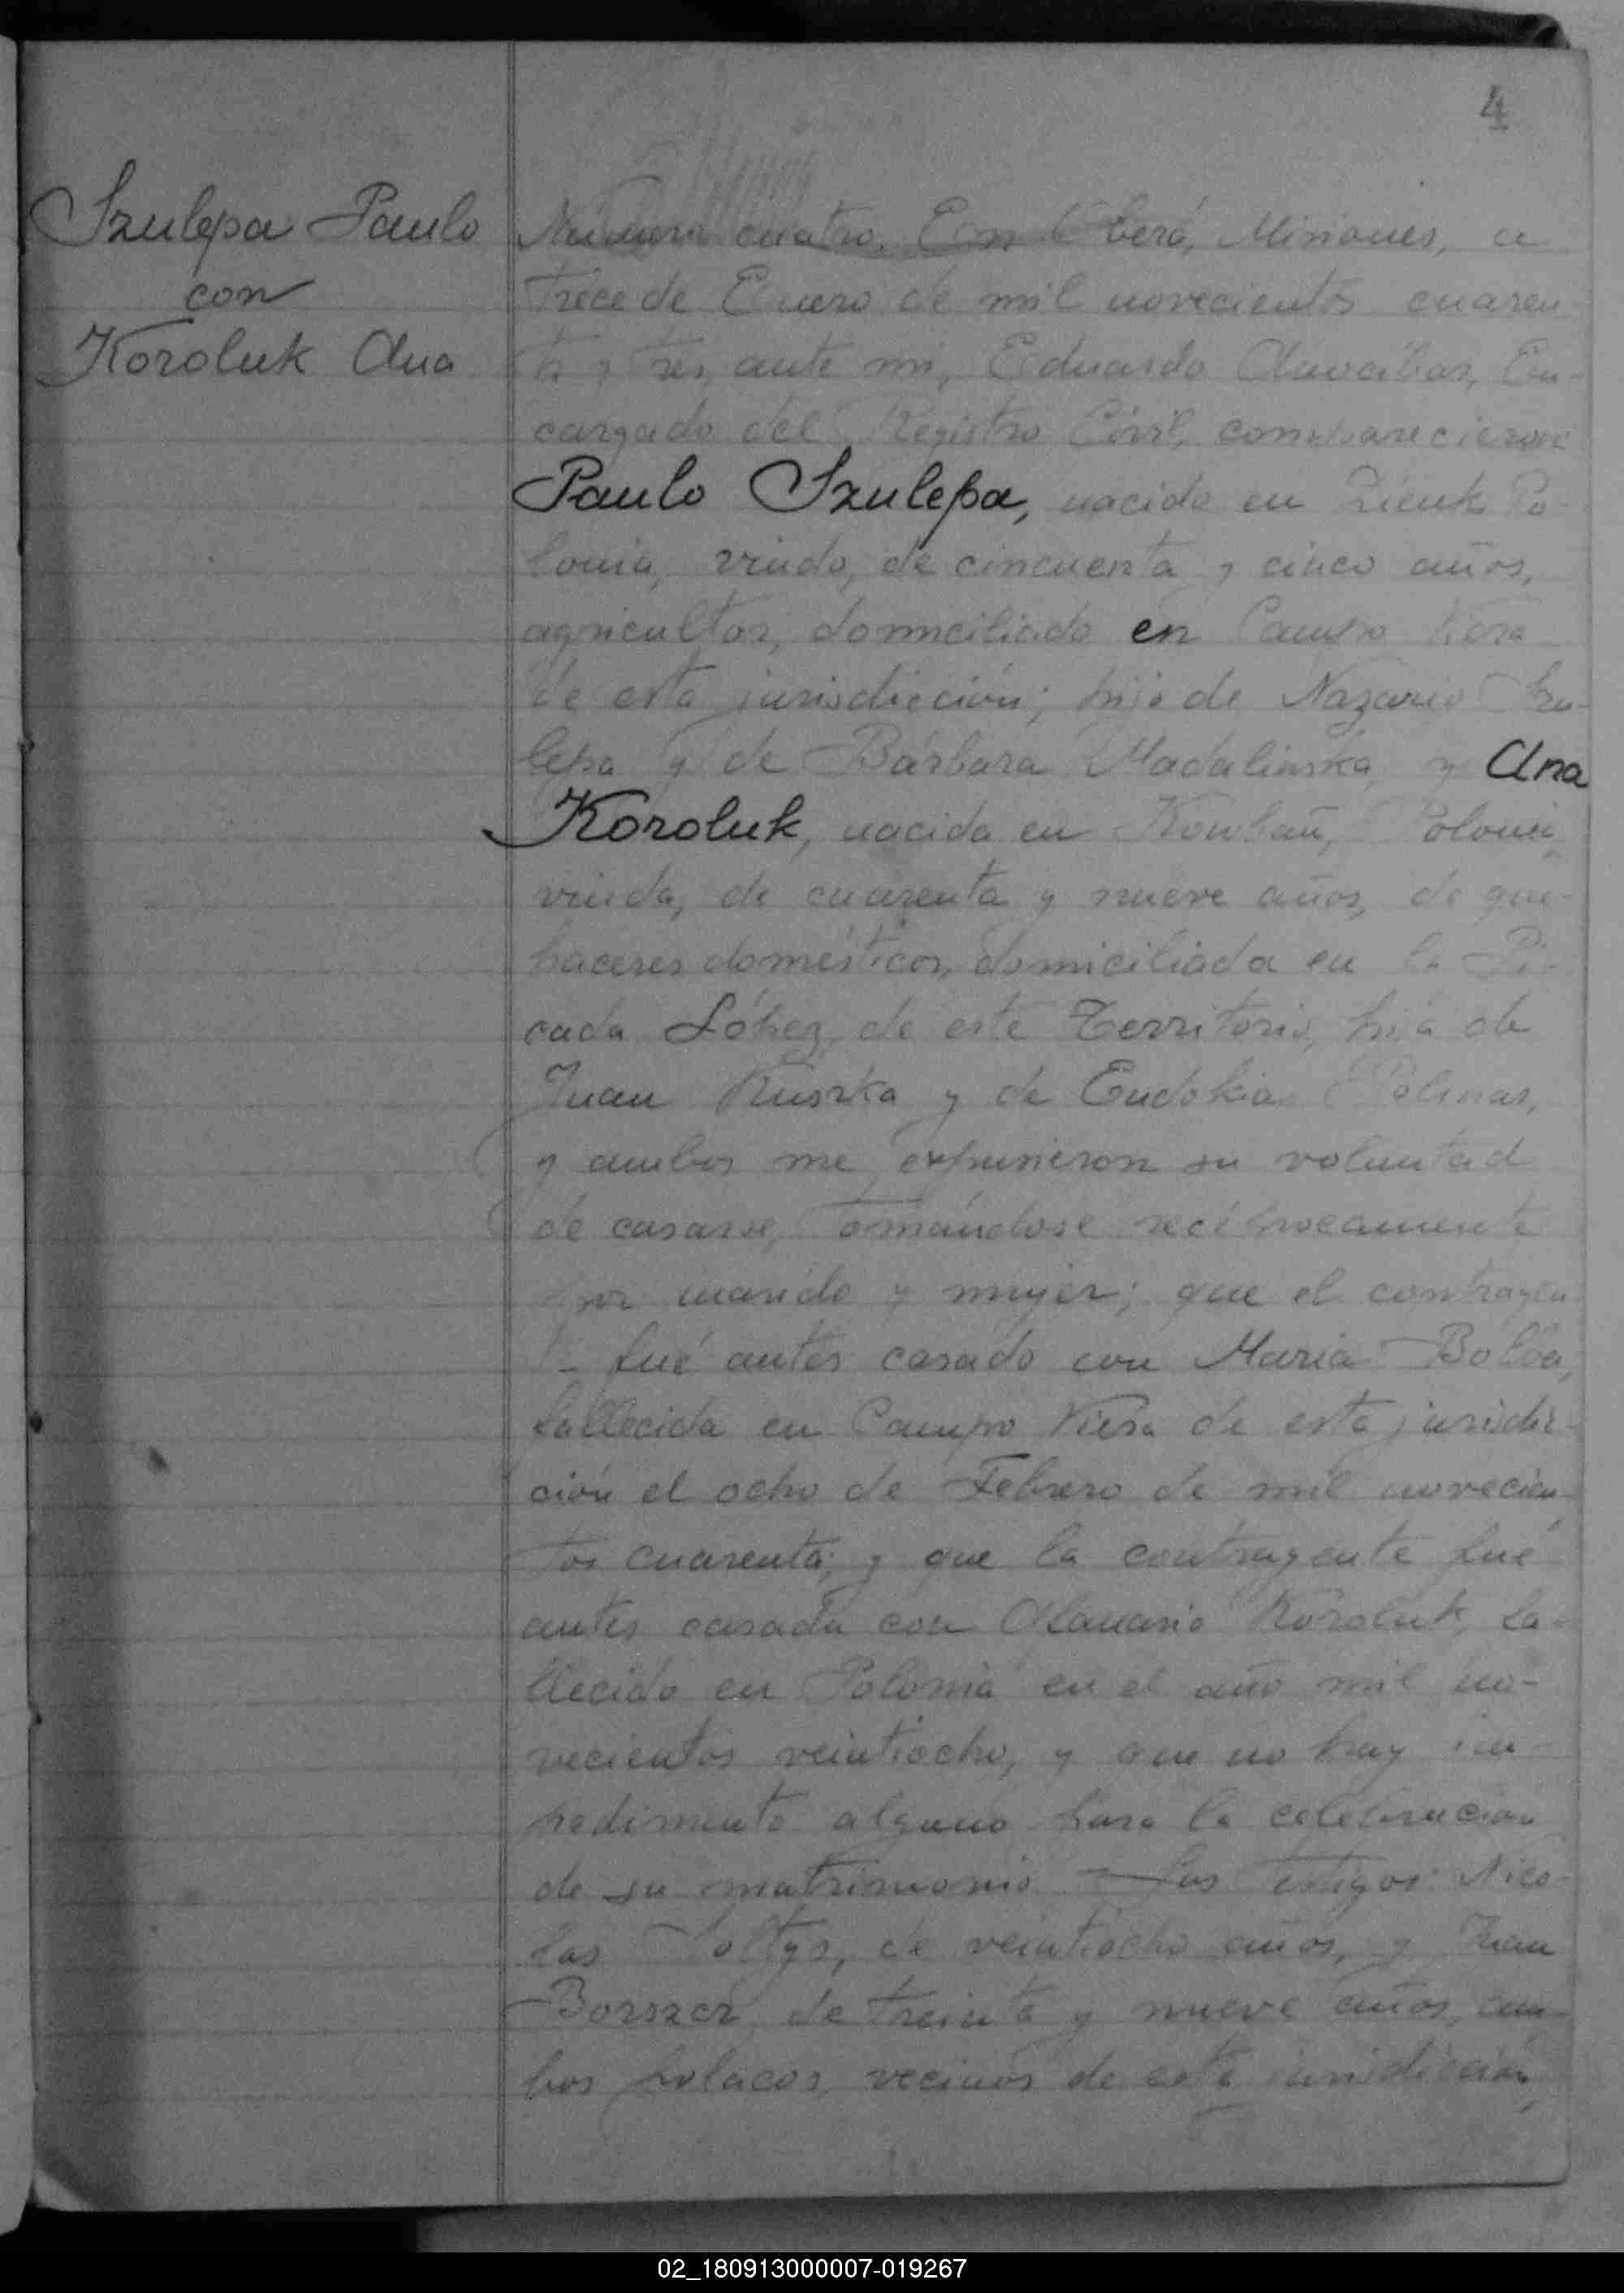 4
Szulepa Paulo
con
Koroluk Ana
Número cuatro. En Oberá, Misiones, a
trece de Enero de mil novecientos cuaren-
ta y tres, ante mi, Eduardo En-
cargado del Registro Civil, comparecieron
Paulo Szulepa, nacido en Po-
lonia, viudo, de cincuenta y cinco años,
agricultor, domiciliado en Campo Viera
de esta jurisdicción; hijo de Nazario Szu-
lepa y de Bárbara Madalinska, y Ana
Koroluk, nacida en Polonia,
viuda, de cuarenta y nueve años, de que-
haceres domésticos, domiciliada en la Pi-
cada López, de este Territorio, hija de
Juan y de Eudokia
y ambos me expusieron su voluntad
de casarse, tomándose recíprocamente
por marido y mujer; que el contrayen-
te fué antes casado con Maria
fallecida en Campo Viera de esta jurisdic-
ción el ocho de Febrero de mil novecien-
tos cuarenta; y que la contrayente fué
antes casada con Koroluk, fa-
llecido en Polonia en el año mil no-
vecientos veintiocho, y que no hay im-
pedimento alguno para la celebración
de su matrimonio. Los testigos: Nico-
las de veintiocho años, y Juan
Borszcz de treinta y nueve años, am-
bos polacos, vecinos de esta jurisdicción,
02_180913000007-019267